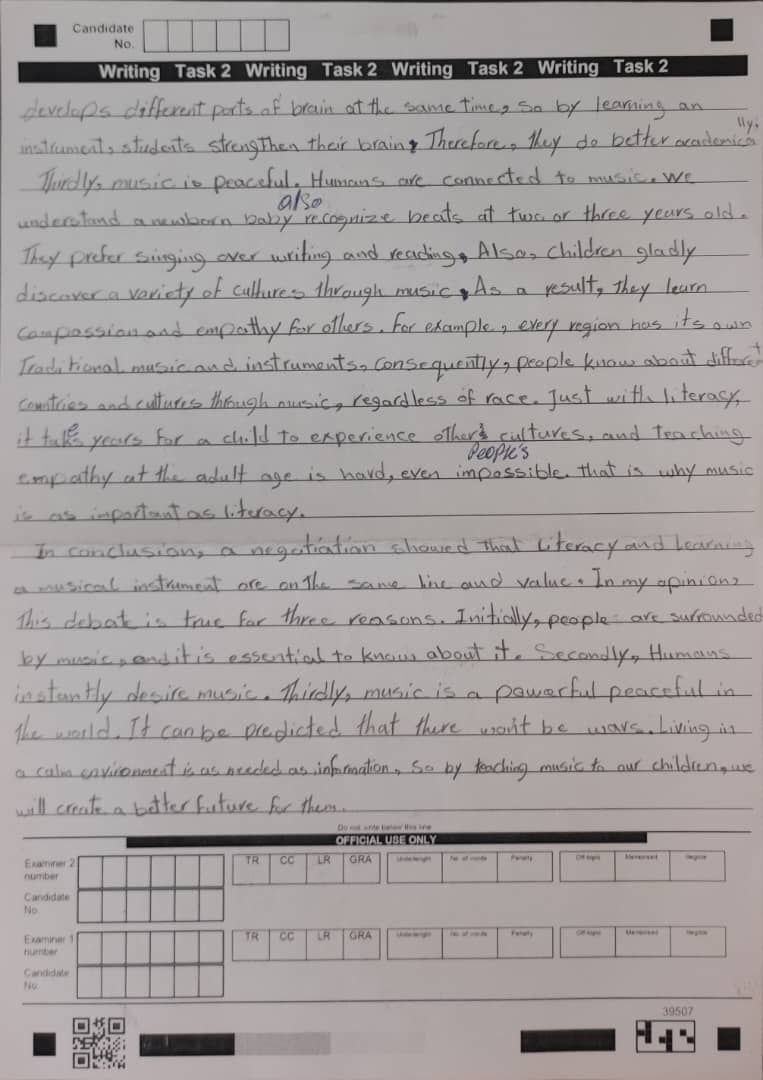 Candidate
No.
Writing Task 2 Writing Task 2 Writing Task 2 Writing Task 2
develops different parts of brain at the same time, so by learning an
instrument, students strengthen their brain, Therefore, they do better academically.
Thirdly, music is peaceful. Humans are connected to music. we
also
understand a newborn baby recognize beats at two or three years old.
They prefer singing over writing and reading, Also, children gladly
discover a variety of cultures through music, As a result, they learn
compassion and empathy for others. For example, every region has its own
Traditional music and instruments, consequently, people know about different
countries and cultures through music, regardless of race. Just with literacy,
it take years for a child to experience other's cultures, and teaching
People's
empathy at the adult age is hard, even impossible. that is why music
is as important as literacy.
In conclusion, a negotiation showed that Literacy and Learning
a musical instrument are on the same line and value. In my opinion,
This debate is true for three reasons. Initially, people are surrounded
by music, and it is essential to know about it. Secondly, Humans
instantly desire music. Thirdly, music is a powerful peaceful in
the world. It can be predicted that there won't be wars. Living in
a calm environment is as needed as information, So by teaching music to our children, we
will create a better future for them.
Do not write below this line
OFFICIAL USE ONLY
Examiner 2
number
TR CC LR GRA Underlength No. of words Penalty Off topic Memorised Illegible
Candidate
No.
Examiner 1
number
TR CC LR GRA Underlength No. of words Penalty Off topic Memorised Illegible
Candidate
No.
39507